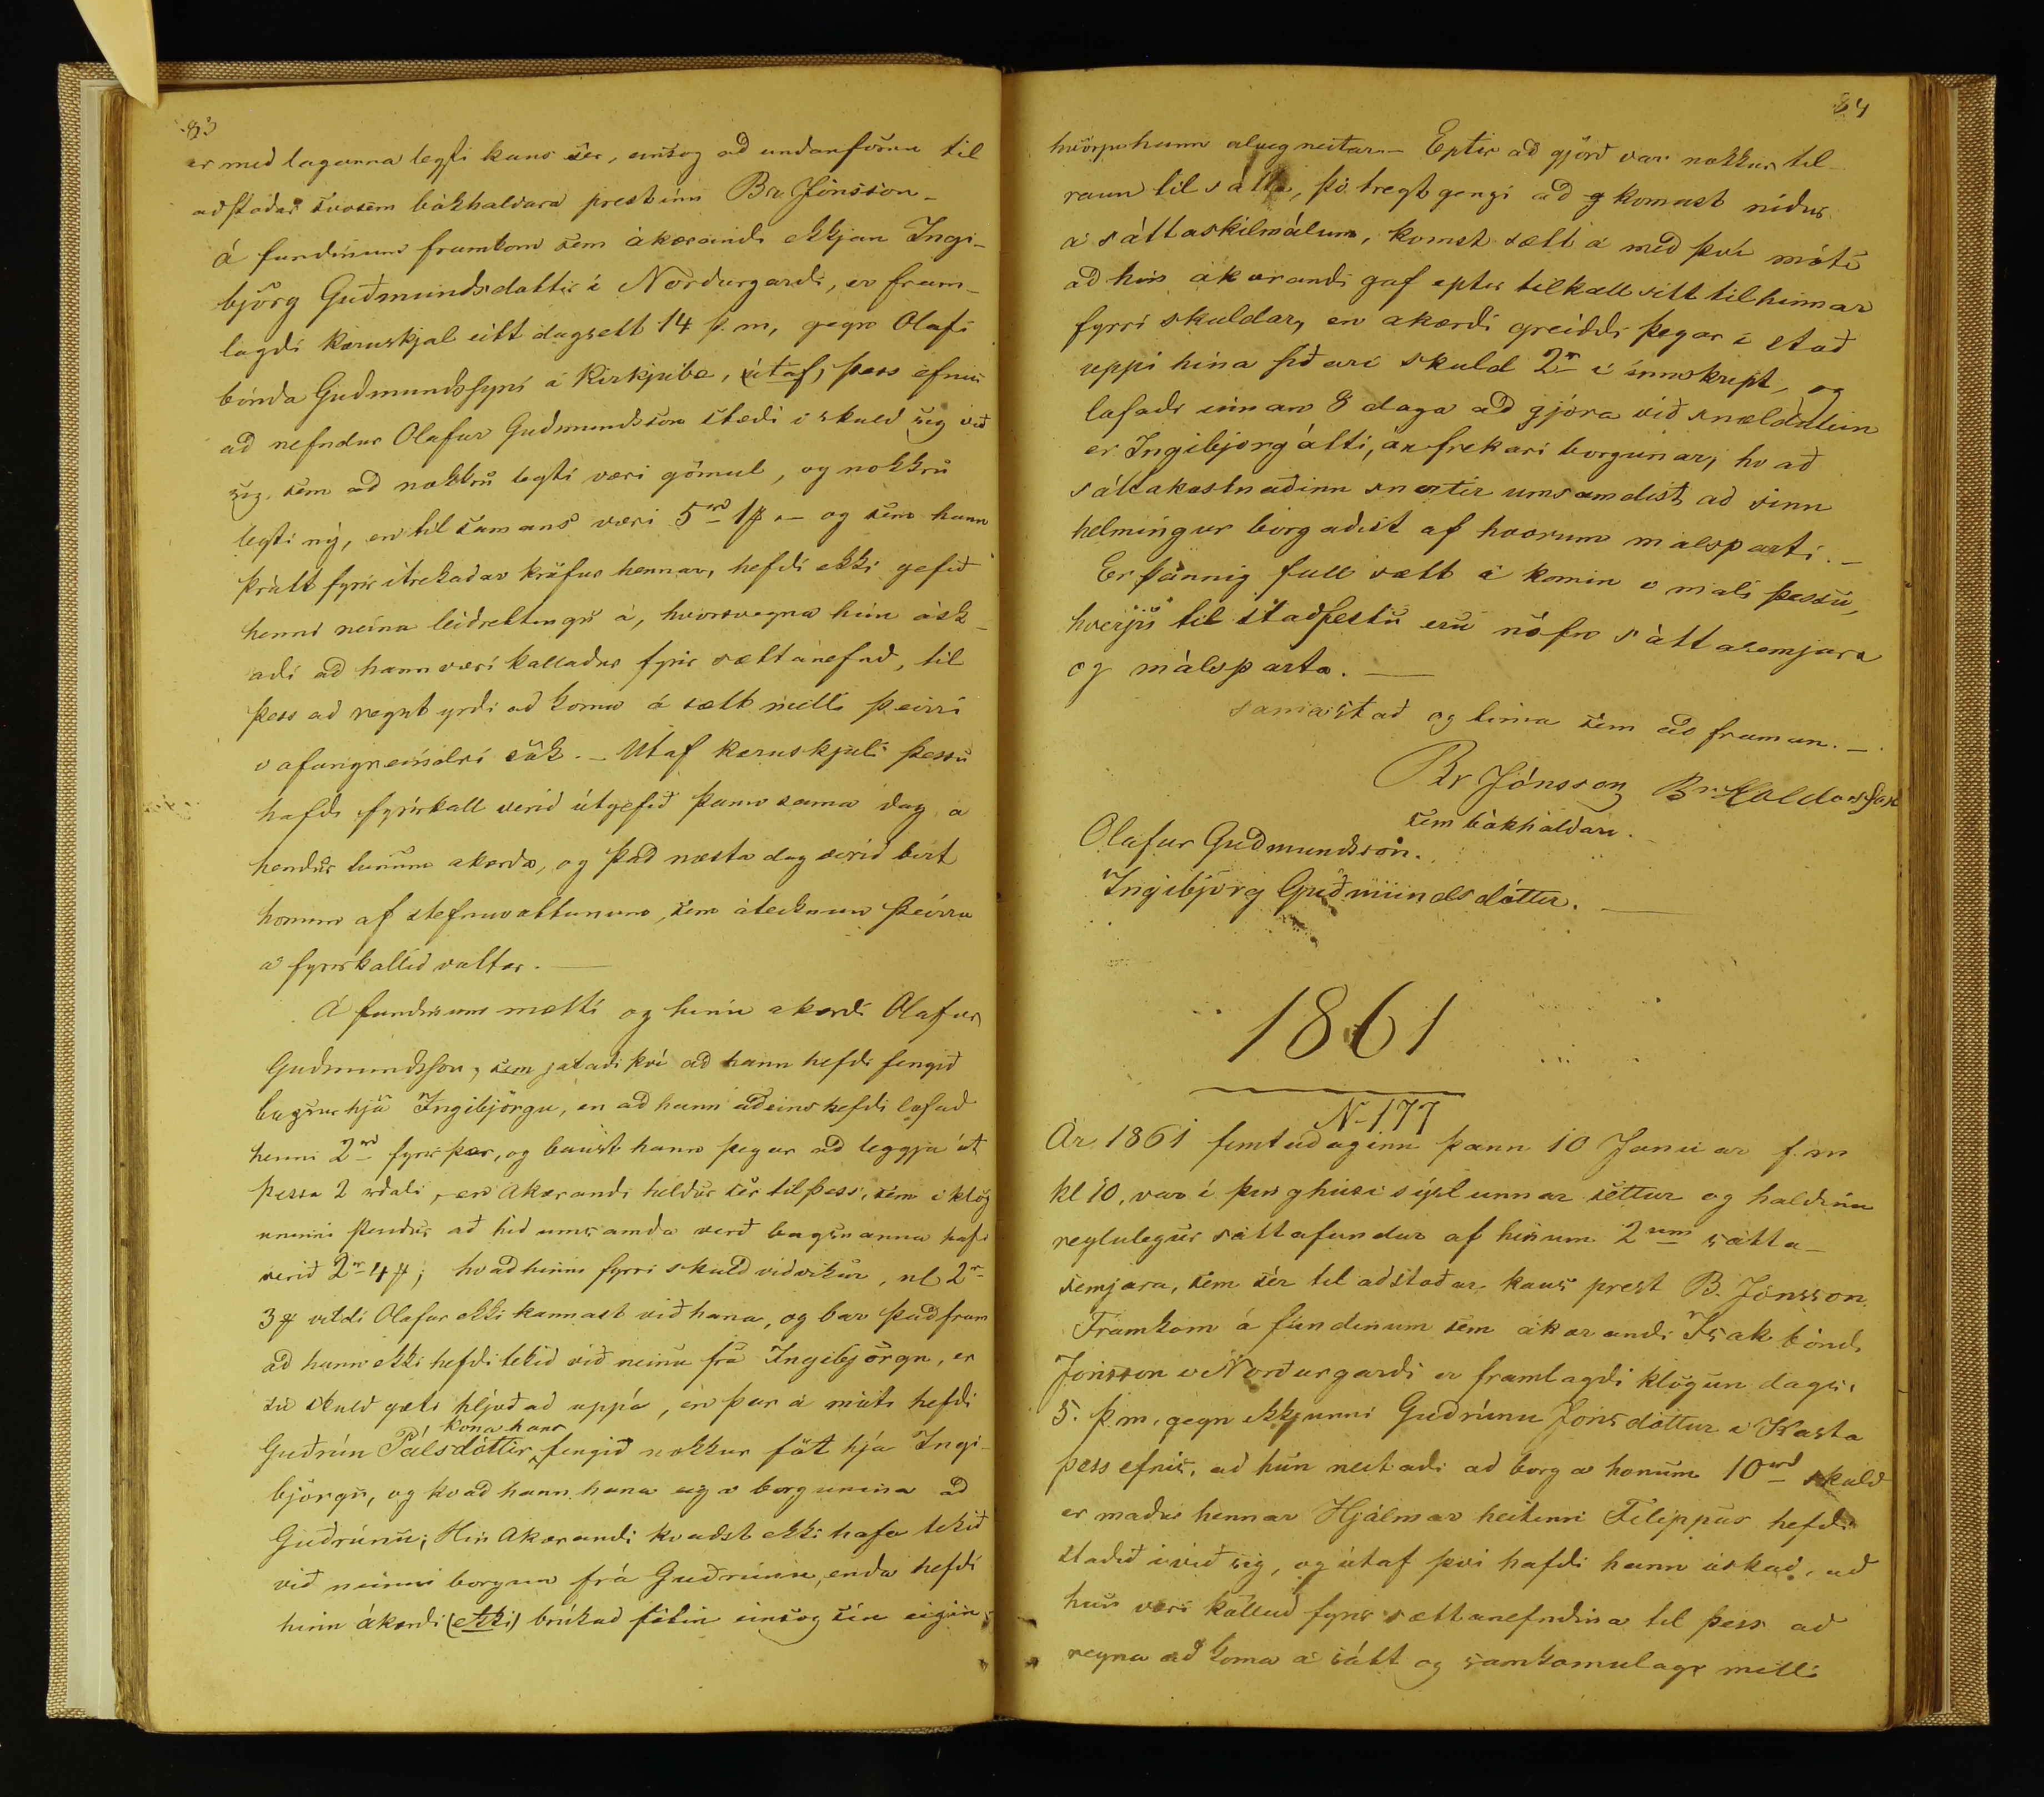 83
er med laganna leyfi kaus sér, einsog ad undanförnu til
adstodar svosem bókhaldara prestinn Br. Jónsson –
á fundinum framkom sem ákærandi ekkjan Ingi-
björg Guðmundsdóttir í Nordurgardi, er fram-
lagdi kæruskjal sitt dagsett 14 þ.m, gegn Olafi
bónda Gudmundssyni á Kirkjubæ, (útaf) þess efnis
ad nefndur Olafur Gudmundsson stædi í skuld sig við
sig, sem ad nokkru leyti væri gömul, og nokkru
leyti ný, en til samans væri 5rd 1f – og sem hann
þrátt fyrir ítrekadar kröfur hennar, hefdi ekki gefið
henni neina leidrettingu á, hvorsvegna hún ósk-
adi ad hann væri kalladur fyrir sættanefnd, til
þess ad reynt yrdi ad koma á sætt milli þeirri
í ofangreindri sök. – Utaf kæruskjali þessu
hafdi fyrirkall verid útgefid þann sama dag á
hendur hinum akærda, og þad næsta dag verid birt
honum af stefnuvottunum, sem áteiknun þeirra
á fyrirkallid vottar. —
Á fundinum mætti og hinn akærdi Olafur
Gudmundsson, sem játadi því ad hann hefdi fengið
bugsur hjá Ingibjörgu, en ad hann adeins hefdi lofad
henni 2rd fyrir þær, og baust hann þegar ad leggja út
þessa 2 rdali, en Akærandi heldur sér til þess, sem í klög
uninni stendur að hid umsamda verð bugsnanna hafi
verið 2r 4f; hvad hinni fyrri skuld vidvikur, nl 2r
3f vildi Olafur ekki kannast við hana, og bar þad fram
ad hann ekki hefdi tekid við neinu frá Ingibjörgu, er
sú skuld gæti hljodad uppá, en þar á móti hefdi
kona hans
Guðrún Pálsdóttir fengið nokkur föt hjá Ingi-
björgu, og kvad hann hana eiga borgunina ad
Guðrúnu; Hin Akærandi kvadst ekki hafa tekið
við neinni borgun frá Guðrúnu, enda hefdi
hinn ákærdi (ekki) brúkad fötin einsog sín eigin,
84
hvörju hann alveg neitar. – Eptir ad gjörd var nokkur til-
raun til sátta, þó tregt gengi ad g komast nidur
á sáttaskilmálum, komst sætt á med því móti
ad hin ákærandi gaf eptir tilkall sitt til hinnar
fyrri skuldar, en akærdi greiddi þegar í stað
uppí hina síðari skuld 2r í innskript, og
lofadi innan 8 daga ad gjöra við snældustein
er Ingibjorg átti, án frekari borgunar; hvað
sáttakostnaðinn snertir umsamdist, ad sinn
helmingur borgadist af hvorum malsparti. –
Er þannig full sætt á komin í máli þessu,
hverju til staðfestu eru nöfn sáttasemjara
og málsparta. —
samastað og tima sem ad framan. –
Br Jónsson Br. Haldorsson
sem bókhaldari.
Olafur Gudmundsson.
Ingibjörg Guðmundsdóttir. —
1861
N. 177
Ár 1861 fimtudaginn þann 10 Januar f.m
kl 10, var í þinghúsi sýslunnar settur og haldinn
reglulegur sáttafundur af hinum 2um sátta-
semjara, sem sér til adstodar kaus prest B. Jónsson.
Framkom á fundinum sem ákærandi Isak bóndi
Jonsson í Norðurgardi er framlagdi klögun dags.
5. þ.m. gegn ekkjunni Gudrúnu Jonsdóttur í Kasta
þess efnis, ad hún neitadi ad borga honum 10rd skuld
er madur hennar Hjálmar heitinn Filippus hefdi
stadið í við sig, og útaf því hafdi hann óskad, að
hún væri kölluð fyrir sættanefndina til þess að
reyna ad koma á sátt og samkomulagi milli